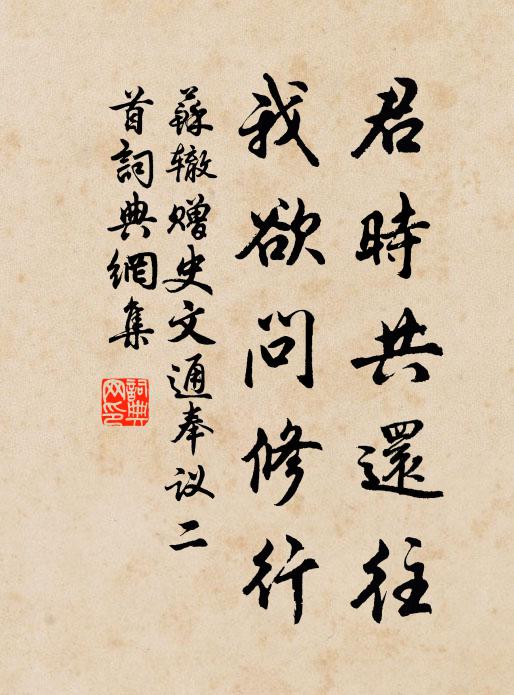 君時共還往
我欲問修行
蘇辙赠史文通奉议二
首詞典網集
詞典
网印